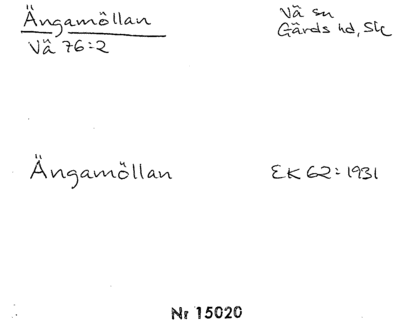 Ängamöllan
Vä 76:2
Vä sn
Gärds hd, Sk
Ängamöllan
EK 62:1931
Nr 15020